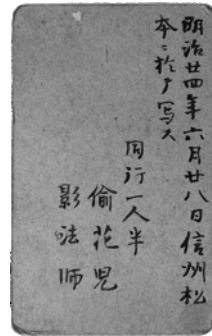 明治廿四年六月廿八日信州松
本ニ於テ写ス
同行一人半
偷花児
影法师